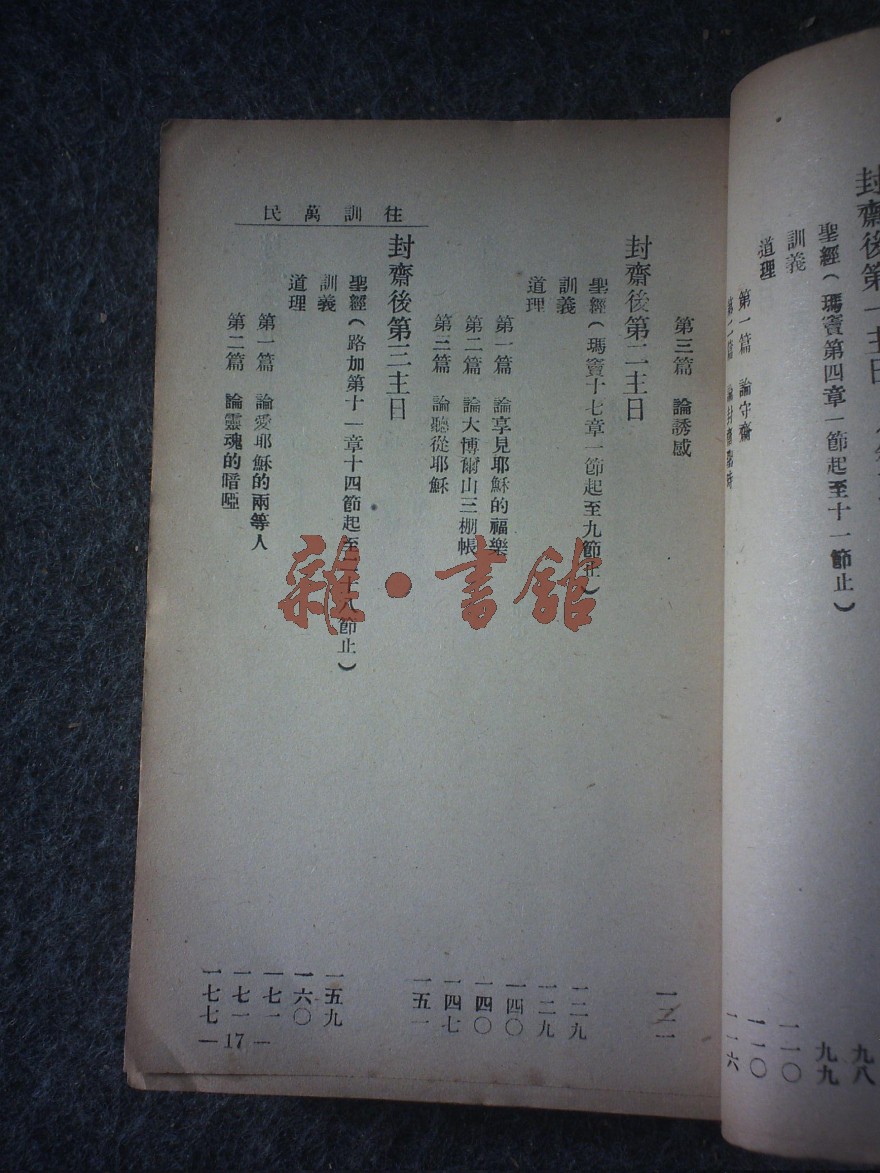 封齋後第一主日
聖經(瑪竇第四章一節起至十一節止) 九八
訓義 九九
道理 一一〇
第一篇 論守齋 一一〇
第二篇 論封齋 一一六
往訓萬民
第三篇 論誘感 一二一
封齋後第二主日
聖經(瑪竇十七章一節起至九節止) 一二九
訓義 一二九
道理 一四〇
第一篇 論享見耶穌的福樂 一四〇
第二篇 論大博爾山三棚帳 一四七
第三篇 論聽從耶穌 一五一
封齋後第三主日
聖經(路加第十一章十四節起至二十八節止) 一五九
訓義 一六〇
道理 一七一
第一篇 論愛耶穌的兩等人 一七一
第二篇 論靈魂的喑啞 一七七
—17—
雜·書館